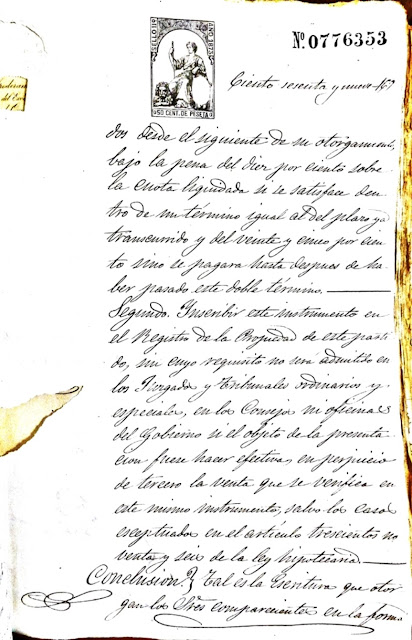 Nº 0776353
SELLO 11º AÑO 1875
50 CENT. DE PESETA
Ciento sesenta y nueve 169
dos desde el siguiente de su otorgamiento,
bajo la pena del diez por ciento sobre
la cuota liquidada si se satisface den
tro de un término igual al del plazo ya
transcurrido y del veinte y cinco por cien
to sino se pagara hasta despues de ha
ber pasado este doble término.
Segundo. Inscribir este instrumento en
el Registro de la Propiedad de este parti
do, sin cuyo requisito no será admitido en
los Juzgados y Tribunales ordinarios y
especiales, en los Consejos ni oficinas
del Gobierno si el objeto de la presenta
cion fuese hacer efectiva, en perjuicio
de tercero la venta que se verifica en
este mismo instrumento, salvo los casos
esceptuados en el artículo trescientos no
venta y seis de la ley hipotecaria.
Conclusion Tal es la Escritura que otor
gan los Sres. comparecientes en la forma